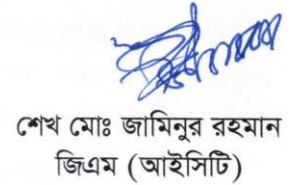 শেখ মোঃ জামিনুর রহমান
জিএম (আইসিটি)